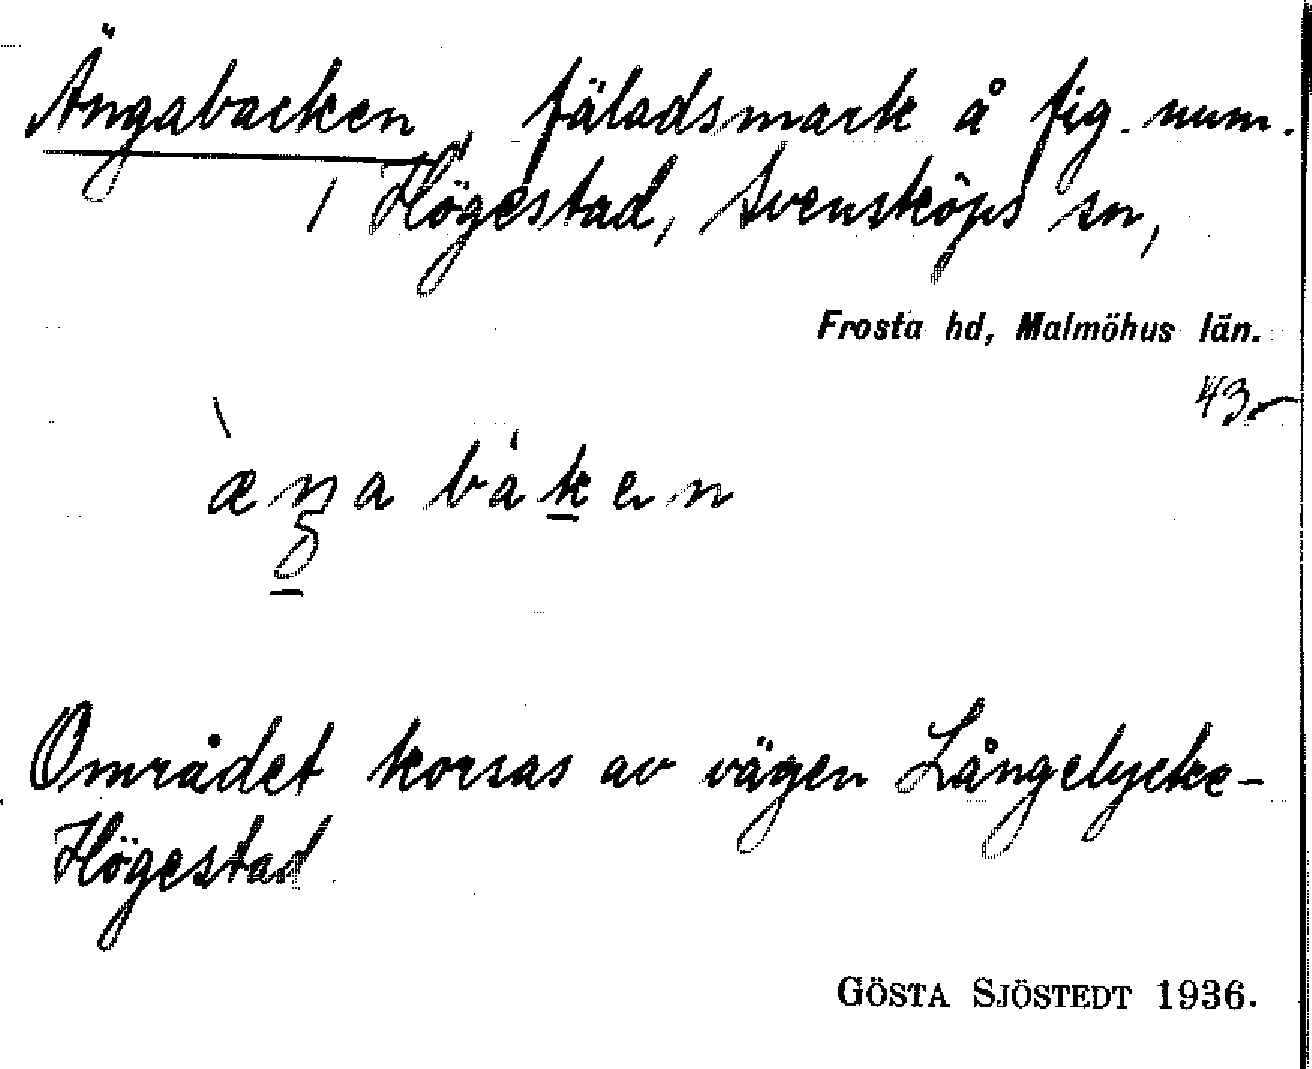 Ängabacken, fäladsmark å fig. num.
1 Högestad, Svensköps sn,
Frosta hd, Malmöhus län.
Området korsas av vägen Långelycke-
Högestad
GÖSTA SJÖSTEDT 1936.